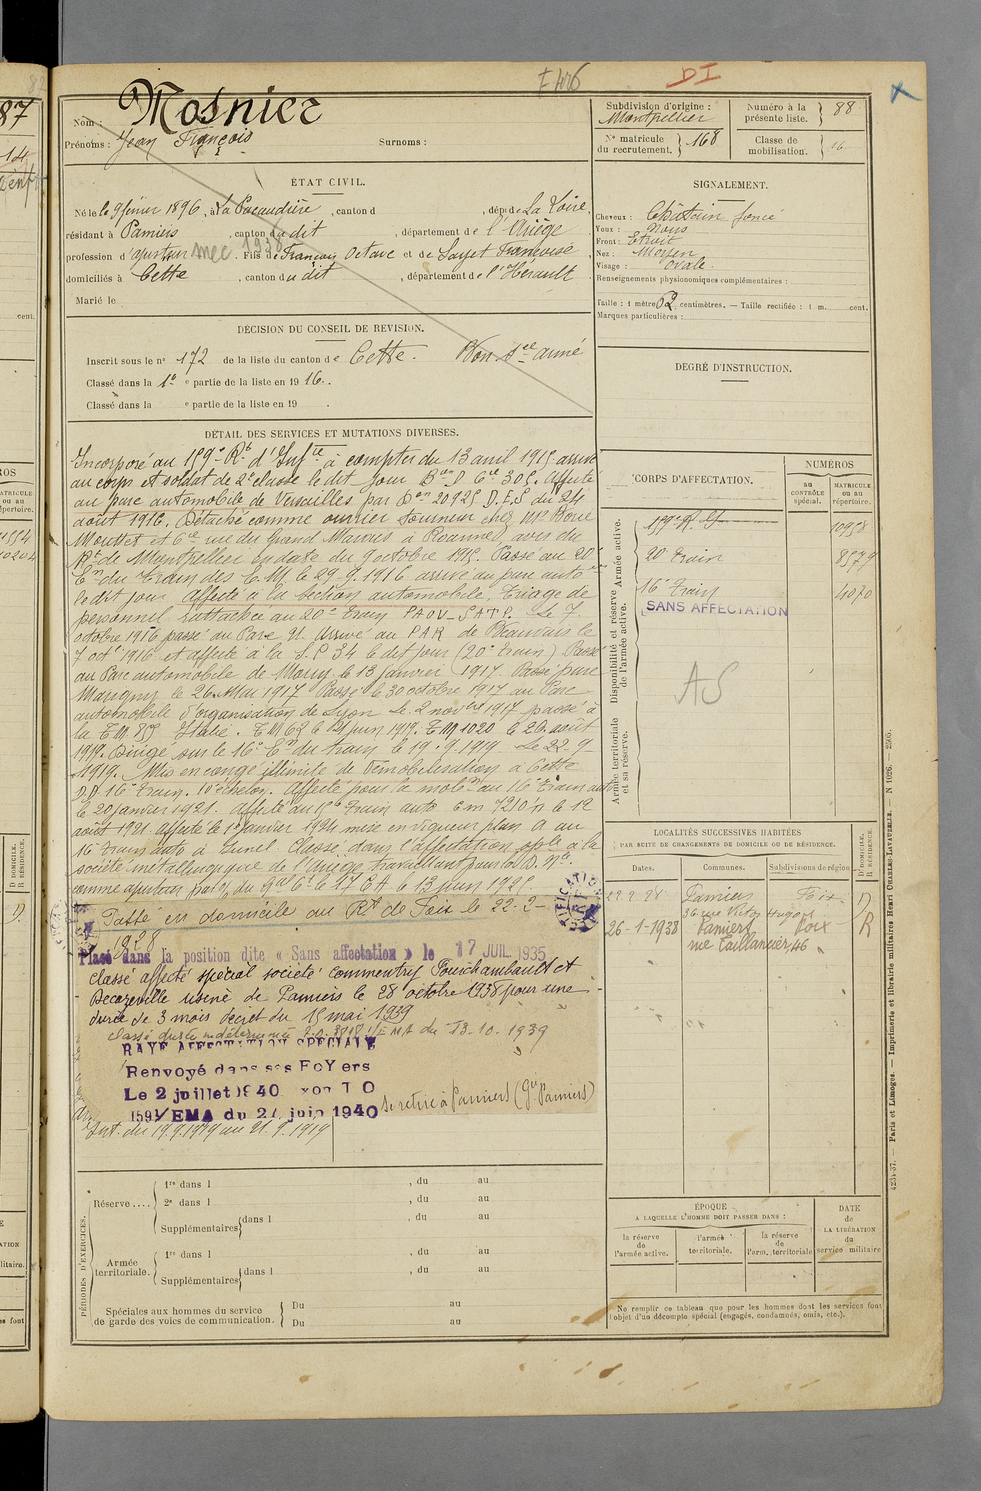 87
Nom : Mosnier
Prénoms : Jean François Surnoms :
DI
Subdivision d'origine : Montpellier
Nº matricule du recrutement. 168
Numéro à la présente liste. 88
Classe de mobilisation. 16
ÉTAT CIVIL.
Né le 9 février 1896, à La Pacaudière, canton d , dépt de La Loire,
résidant à Pamiers, canton du dit, département de l'Ariège
profession d'ajusteur mec 1938. Fils de François Octave et de Sayet Françoise
domiciliés à Cette, canton du dit, département de l'Hérault
Marié le
SIGNALEMENT.
Cheveux : Châtain foncé
Yeux :
Front : Etroit
Nez : Moyen
Visage : Ovale
Renseignements physionomiques complémentaires :
Taille : 1 mètre 62 centimètres. — Taille rectifiée : 1 m. cent.
Marques particulières :
DÉCISION DU CONSEIL DE REVISION.
Inscrit sous le nº 172 de la liste du canton de Cette. Bon. Sce armé
Classé dans la 1e partie de la liste en 1916.
Classé dans la e partie de la liste en 19 .
DEGRÉ D'INSTRUCTION.
DÉTAIL DES SERVICES ET MUTATIONS DIVERSES.
Incorporé au 159e Rt d'Infie à compter du 13 avril 1915 arrivé
au corps et soldat de 2e classe le dit jour. Affecté
au parc automobile de Versailles par Don 20925 D.E.S du 24
août 1916. Détaché comme ouvrier tourneur chez Mr
Mouttet et Cie rue du Grand Marais à Roanne, avis du
Rt de Montpellier en date du 9 octobre 1915. Passé au 20e
Eon du Train des E.M. le 29-9-1916 arrivé au parc auto
le dit jour affecté à la Section automobile. Triage de
personnel rattachée au 20e Train. Le 7
octobre 1916 passé au Parc. Arrivé au PAR de Beauvais le
7 oct 1916 et affecté à la S.P 34 le dit jour (20e Train) Passé
au Parc automobile de le 13 janvier 1917. Passé parc
Marigny le 26 Mai 1917. Passé le 30 octobre 1917 au Parc
automobile d'organisation de Lyon. Le 2 novbre 1917 passé à
la TM Italie. TM 62 le 21 juin 1919. TM 1020 le 26 août
1919. Dirigé sur le 16e Eon du train le 19-9-1919. Le 22-9-
1919. Mis en congé illimité de démobilisation à Cette
D.D. 16e Train. 10e échelon. Affecté pour la mobon au 16e Train auto
le 20 janvier 1921. Affecté au Train auto le 12
août 1921. Affecté le 1er janvier 1924 mise en vigueur plan A au
16e Train auto à Lunel. Classé dans l'affectation sple à la
société métallurgique de l'Ariège travaillant pour la D. Nle
comme ajusteur par on du Gal Ct le 17 CA le 13 juin 1925.
Passé en domicile au Rt de Foix le 22-2-
1928
Placé dans la position dite « Sans affectation » le 17 JUIL. 1935
Classé affecté spécial société Commentry Fourchambault et
Decazeville usine de Pamiers le 28 octobre 1938 pour une
durée de 3 mois décret du 15 mai 1939
Classé durée indéterminée EMA du 13.10.1939
RAYE AFFECTATION SPECIALE
Renvoyé dans ses FoYers
Le 2 juillet 1940
1591/EMA du 27 juin 1940
Se retire à Pamiers
Int. du 19.9.1919 au 21.9.1919
CORPS D'AFFECTATION.
NUMÉROS
au CONTRÔLE spécial.
MATRICULE ou au répertoire.
Armée active.
159e R.I. 10958
20e Train 8579
Disponibilité et réserve de l'armée active.
16e Train 4070
SANS AFFECTATION
AS
Armée territoriale et sa réserve.
LOCALITÉS SUCCESSIVES HABITÉES
PAR SUITE DE CHANGEMENTS DE DOMICILE OU DE RÉSIDENCE.
Dates. Communes. Subdivisions de région. D. DOMICILE. R. RÉSIDENCE.
22-2-28 Pamiers Foix D
36 rue Victor Hugo
26-1-1938 Pamiers Foix R
rue Taillancier, 46
PÉRIODES D'EXERCICES.
Réserve....
1re dans l , du au
2e dans l , du au
Supplémentaires dans l , du au
Armée territoriale.
1re dans l , du au
Supplémentaires dans l , du au
Spéciales aux hommes du service de garde des voies de communication.
Du au
Du au
ÉPOQUE
A LAQUELLE L'HOMME DOIT PASSER DANS :
la réserve de l'armée active.
l'armée territoriale.
la réserve de l'arm. territoriale
DATE de LA LIBÉRATION du service militaire
Ne remplir ce tableau que pour les hommes dont les services font
l'objet d'un décompte spécial (engagés, condamnés, omis, etc.).
4234-37. — Paris et Limoges. — Imprimerie et librairie militaires Henri CHARLES-LAVAUZELLE. — N 1026. — 2505.